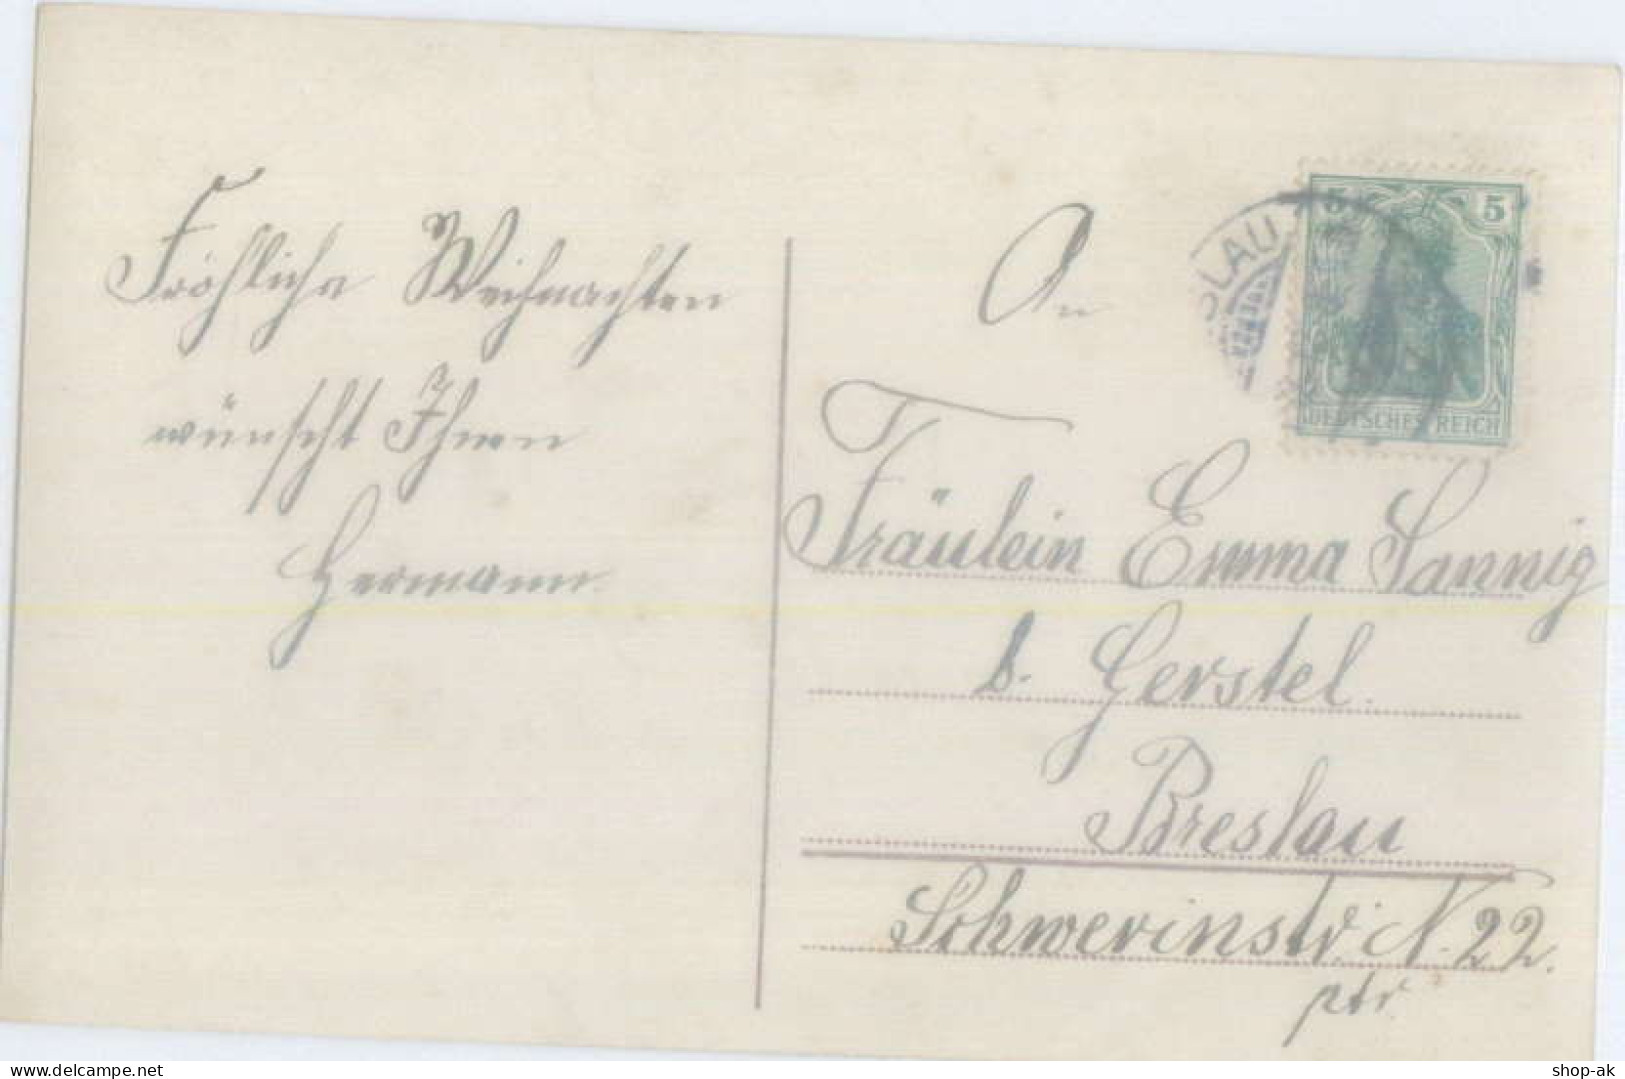 Fröhliche Weihnachten
wünscht Ihnen
Hermann.
An
SLAU
5 5
DEUTSCHES REICH
Fräulein Emma Sannig
b. Gerstel.
Breslau
Schwerinstr. N. 22.
ptr.
www.delcampe.net
shop-ak